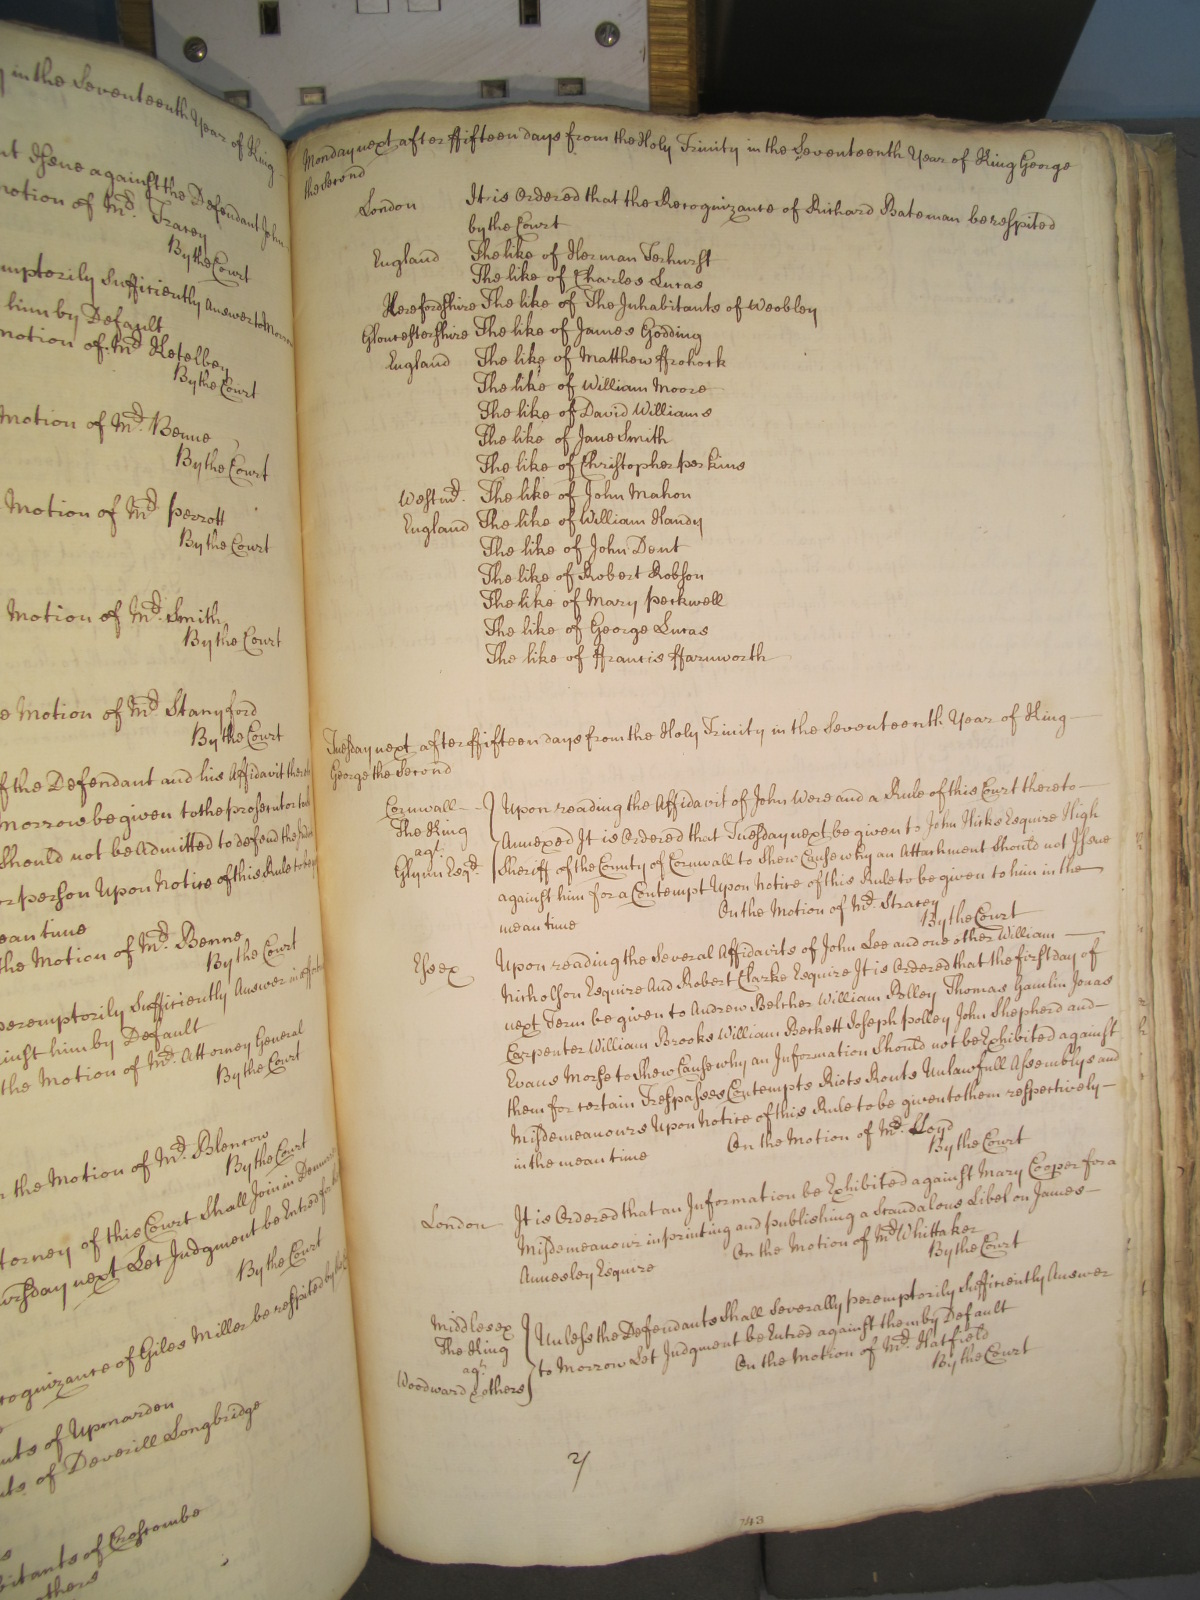 in the Seventeenth Year of King
Issue against the Defendant John
motion of Mr. Tracey
By the Court
Sufficiently Answer to Morrow
him by Default
motion of Mr Ketelbey
By the Court
Motion of Mr Benne
By the Court
Motion of Mr Perrott
By the Court
Motion of Mr. Smith
By the Court
Motion of Mr Stanyford
By the Court
of the Defendant and his Affidavit
morrow be given to the prosecutor
Should not be Admitted to defend
person Upon Notice of this Rule to be
meantime
the Motion of Mr Benne
By the Court
peremptorily Sufficiently Answer
against him by Default
the Motion of Mr Attorney General
By the Court
the Motion of Mr. Blencow
By the Court
of this Court Shall Join in
next Let Judgment be Entred for
By the Court
of Giles Miller be respited by
of Upmarden
of Deverill Longbridge
of Croscombe
others
Monday next after ffifteen days from the Holy Trinity in the Seventeenth Year of King George
the Second
London It is Ordered that the Recognizance of Richard Bateman be respited
by the Court
England The like of Herman Terhurst
The like of Charles Lucas
Herefordshire The like of The Inhabitants of Weobley
Gloucestershire The like of James Godding
England The like of Matthew ffrohock
The like of William Moore
The like of David Williams
The like of Jane Smith
The like of Christopher perkins
Westmd. The like of John Mahon
England The like of William Handy
The like of John Dent
The like of Robert Robson
The like of Mary peckwell
The like of George Lucas
The like of ffrancis ffarnworth
Tuesday next after ffifteen days from the Holy Trinity in the Seventeenth Year of King
George the Second
Cornwall Upon reading the Affidavit of John Were and a Rule of this Court thereto
The King Annexed It is Ordered that Tuesday next be given to John Hicks Esquire High
agt. Sheriff of the County of Cornwall to Shew Cause why an Attachment Should not Issue
Glynn Esqr. against him for a Contempt Upon Notice of this Rule to be given to him in the
mean time On the Motion of Mr. Stracey
By the Court
Essex Upon reading the Several Affidavits of John Lee and one other William
Nicholson Esquire And Robert Clarke Esquire It is Ordered that the first day of
next Term be given to Andrew Belcher William Polley Thomas Gamlin Jonas
Carpenter William Brooks William Beckett Joseph polley John Shepherd and
Evans Morse to Shew Cause why an Information Should not be Exhibited against
them for certain Trespasses Contempts Riots Routs Unlawfull Assemblys and
Misdemeanours Upon Notice of this Rule to be given to them respectively
in the mean time On the Motion of Mr. Lloyd
By the Court
London It is Ordered that an Information be Exhibited against Mary Cooper for a
Misdemeanour in printing and publishing a Scandalous Libel on James
Annesley Esquire On the Motion of Mr Whittaker
By the Court
Middlesex Unless the Defendants Shall Severally peremptorily Sufficiently Answer
The King to Morrow Let Judgment be Entred against them by Default
agt. On the Motion of Mr. Hatfield
Woodward & others By the Court
243